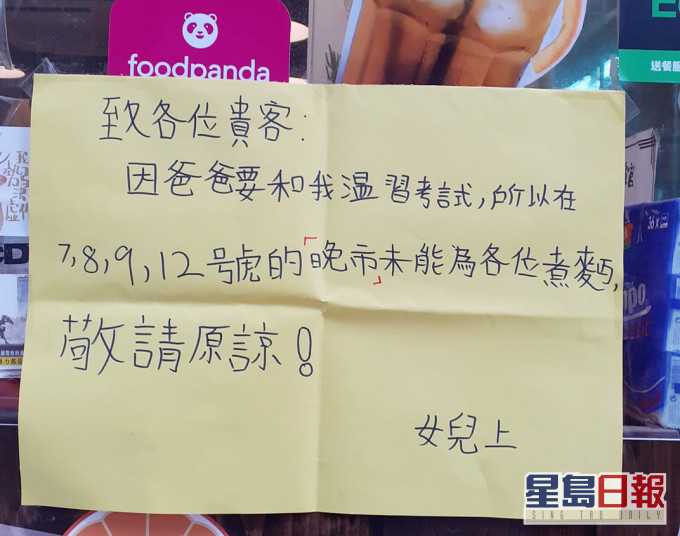 foodpanda
E
送餐服
致各位貴客:
因爸爸要和我溫習考試,所以在
7,8,9,12號的「晚市」未能為各位煮麵,
敬請原諒!
女兒上
36x
星島日報
SING TAO DAILY